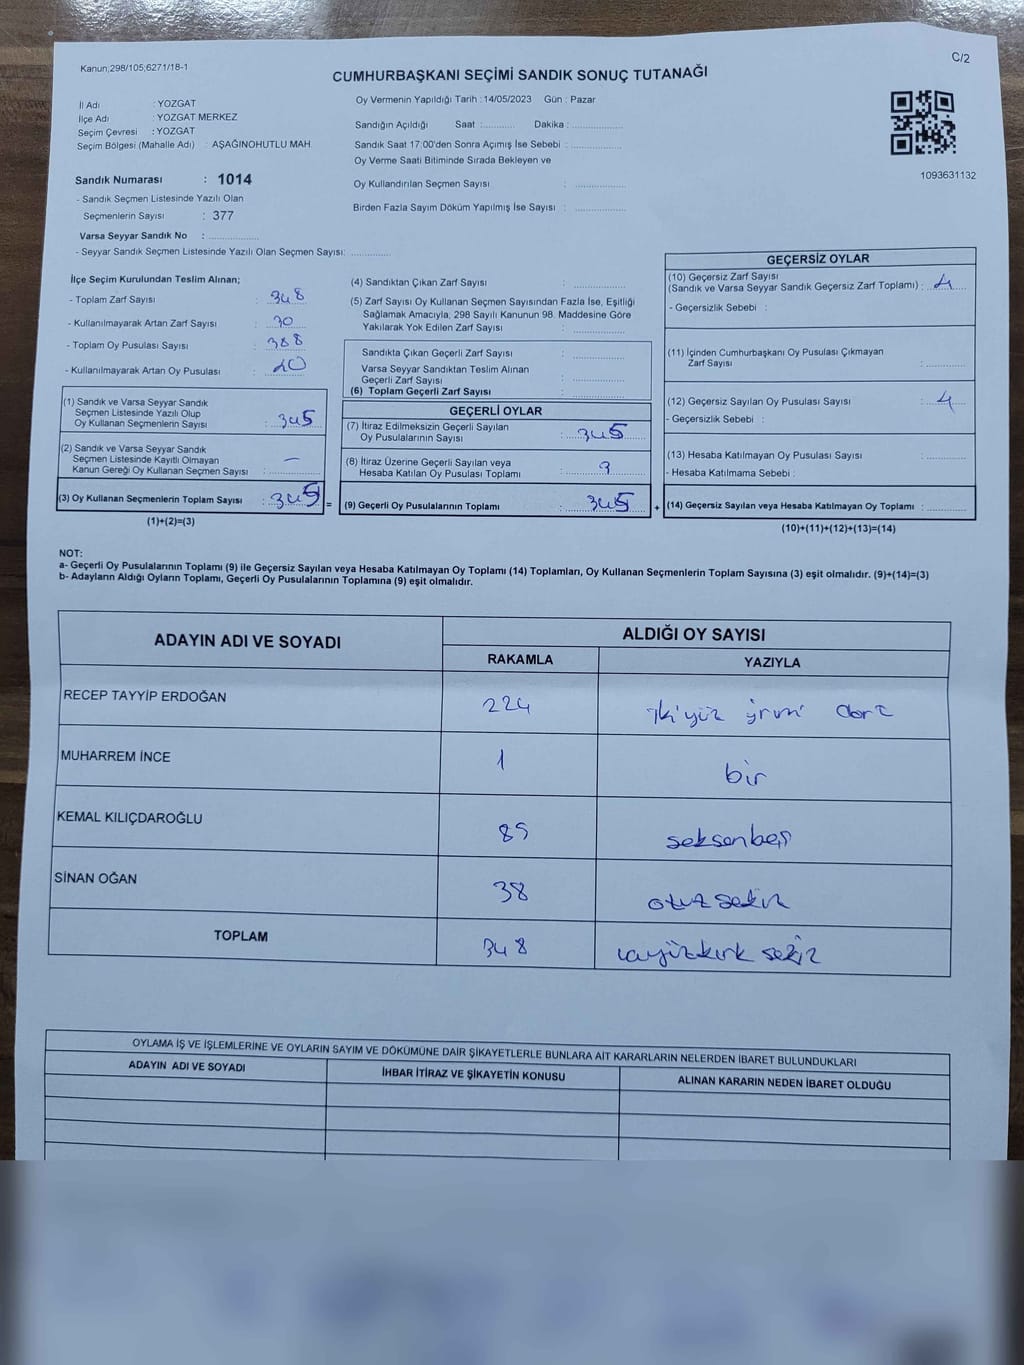 Kanun;298/105;6271/18-1
C/2
CUMHURBAŞKANI SEÇİMİ SANDIK SONUÇ TUTANAĞI
İl Adı : YOZGAT
İlçe Adı : YOZGAT MERKEZ
Seçim Çevresi : YOZGAT
Seçim Bölgesi (Mahalle Adı) : AŞAĞINOHUTLU MAH.
Sandık Numarası : 1014
- Sandık Seçmen Listesinde Yazılı Olan
Seçmenlerin Sayısı : 377
Varsa Seyyar Sandık No :
- Seyyar Sandık Seçmen Listesinde Yazılı Olan Seçmen Sayısı:
Oy Vermenin Yapıldığı Tarih :14/05/2023 Gün : Pazar
Sandığın Açıldığı Saat : Dakika :
Sandık Saat 17:00'den Sonra Açımış İse Sebebi :
Oy Verme Saati Bitiminde Sırada Bekleyen ve
Oy Kullandırılan Seçmen Sayısı :
Birden Fazla Sayım Döküm Yapılmış İse Sayısı :
1093631132
İlçe Seçim Kurulundan Teslim Alınan;
- Toplam Zarf Sayısı : 348
- Kullanılmayarak Artan Zarf Sayısı : 30
- Toplam Oy Pusulası Sayısı : 388
- Kullanılmayarak Artan Oy Pusulası : 20
(1) Sandık ve Varsa Seyyar Sandık
Seçmen Listesinde Yazılı Olup
Oy Kullanan Seçmenlerin Sayısı : 345
(2) Sandık ve Varsa Seyyar Sandık
Seçmen Listesinde Kayıtlı Olmayan
Kanun Gereği Oy Kullanan Seçmen Sayısı : –
(3) Oy Kullanan Seçmenlerin Toplam Sayısı : 345 =
(1)+(2)=(3)
(4) Sandıktan Çıkan Zarf Sayısı :
(5) Zarf Sayısı Oy Kullanan Seçmen Sayısından Fazla İse, Eşitliği
Sağlamak Amacıyla, 298 Sayılı Kanunun 98. Maddesine Göre
Yakılarak Yok Edilen Zarf Sayısı :
Sandıkta Çıkan Geçerli Zarf Sayısı :
Varsa Seyyar Sandıktan Teslim Alınan
Geçerli Zarf Sayısı :
(6) Toplam Geçerli Zarf Sayısı :
GEÇERLİ OYLAR
(7) İtiraz Edilmeksizin Geçerli Sayılan
Oy Pusulalarının Sayısı : 345
(8) İtiraz Üzerine Geçerli Sayılan veya
Hesaba Katılan Oy Pusulası Toplamı :
(9) Geçerli Oy Pusulalarının Toplamı : 345 +
GEÇERSİZ OYLAR
(10) Geçersiz Zarf Sayısı
(Sandık ve Varsa Seyyar Sandık Geçersiz Zarf Toplamı) : 4
- Geçersizlik Sebebi :
(11) İçinden Cumhurbaşkanı Oy Pusulası Çıkmayan
Zarf Sayısı :
(12) Geçersiz Sayılan Oy Pusulası Sayısı : 4
- Geçersizlik Sebebi :
(13) Hesaba Katılmayan Oy Pusulası Sayısı :
- Hesaba Katılmama Sebebi :
(14) Geçersiz Sayılan veya Hesaba Katılmayan Oy Toplamı :
(10)+(11)+(12)+(13)=(14)
NOT:
a- Geçerli Oy Pusulalarının Toplamı (9) ile Geçersiz Sayılan veya Hesaba Katılmayan Oy Toplamı (14) Toplamları, Oy Kullanan Seçmenlerin Toplam Sayısına (3) eşit olmalıdır. (9)+(14)=(3)
b- Adayların Aldığı Oyların Toplamı, Geçerli Oy Pusulalarının Toplamına (9) eşit olmalıdır.
ADAYIN ADI VE SOYADI
ALDIĞI OY SAYISI
RAKAMLA YAZIYLA
RECEP TAYYİP ERDOĞAN 224 ikiyüz yirmi dört
MUHARREM İNCE 1 bir
KEMAL KILIÇDAROĞLU 85 seksenbeş
SİNAN OĞAN 38 otuz sekiz
TOPLAM 348 üçyüzkırk sekiz
OYLAMA İŞ VE İŞLEMLERİNE VE OYLARIN SAYIM VE DÖKÜMÜNE DAİR ŞİKAYETLERLE BUNLARA AİT KARARLARIN NELERDEN İBARET BULUNDUKLARI
ADAYIN ADI VE SOYADI İHBAR İTİRAZ VE ŞİKAYETİN KONUSU ALINAN KARARIN NEDEN İBARET OLDUĞU